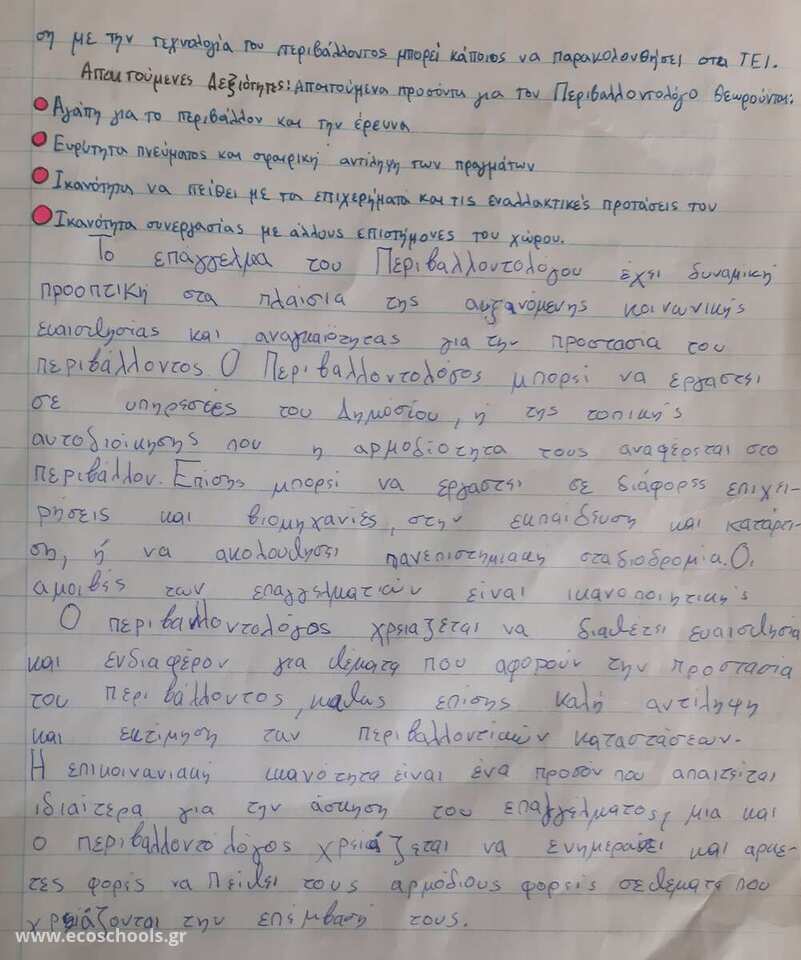 ση με την τεχνολογία του περιβάλλοντος μπορεί κάποιος να παρακολουθήσει στα ΤΕΙ.
Απαιτούμενες Δεξιότητες: Απαιτούμενα προσόντα για τον Περιβαλλοντολόγο θεωρούνται:
Αγάπη για το περιβάλλον και την έρευνα
Ευρύτητα πνεύματος και σφαιρική αντίληψη των πραγμάτων
Ικανότητα να πείθει με τα επιχειρήματα και τις εναλλακτικές προτάσεις του
Ικανότητα συνεργασίας με άλλους επιστήμονες του χώρου.
Το επάγγελμα του Περιβαλλοντολόγου έχει δυναμική
προοπτική στα πλαίσια της αυξανόμενης κοινωνικής
ευαισθησίας και αναγκαιότητας για την προστασία του
περιβάλλοντος. Ο Περιβαλλοντολόγος μπορεί να εργαστεί
σε υπηρεσίες του Δημοσίου, ή της τοπικής
αυτοδιοίκησης που η αρμοδιότητα τους αναφέρεται στο
περιβάλλον. Επίσης μπορεί να εργαστεί σε διάφορες επιχει-
ρήσεις και βιομηχανίες, στην εκπαίδευση και κατάρτι-
ση, ή να ακολουθήσει πανεπιστημιακή σταδιοδρομία. Οι
αμοιβές των επαγγελματιών είναι ικανοποιητικές
Ο περιβαλλοντολόγος χρειάζεται να διαθέτει ευαισθησία
και ενδιαφέρον για θέματα που αφορούν την προστασία
του περιβάλλοντος, καθώς επίσης καλή αντίληψη
και εκτίμηση των περιβαλλοντικών καταστάσεων.
Η επικοινωνιακή ικανότητα είναι ένα προσόν που απαιτείται
ιδιαίτερα για την άσκηση του επαγγέλματος, μια και
ο περιβαλλοντολόγος χρειάζεται να ενημερώσει και αρκε-
τές φορές να πείθει τους αρμόδιους φορείς σε θέματα που
χρειάζονται την επέμβασή τους.
www.ecoschools.gr